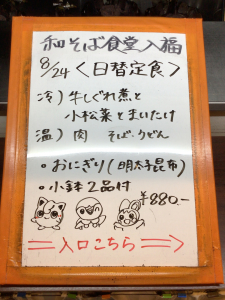 和そば食堂入福
8/24 〈日替定食〉
冷) 牛しぐれ煮と
小松菜とまいたけ
温) 肉 そば・うどん
・おにぎり(明太子昆布)
・小鉢2品付
¥880.-
入口こちら